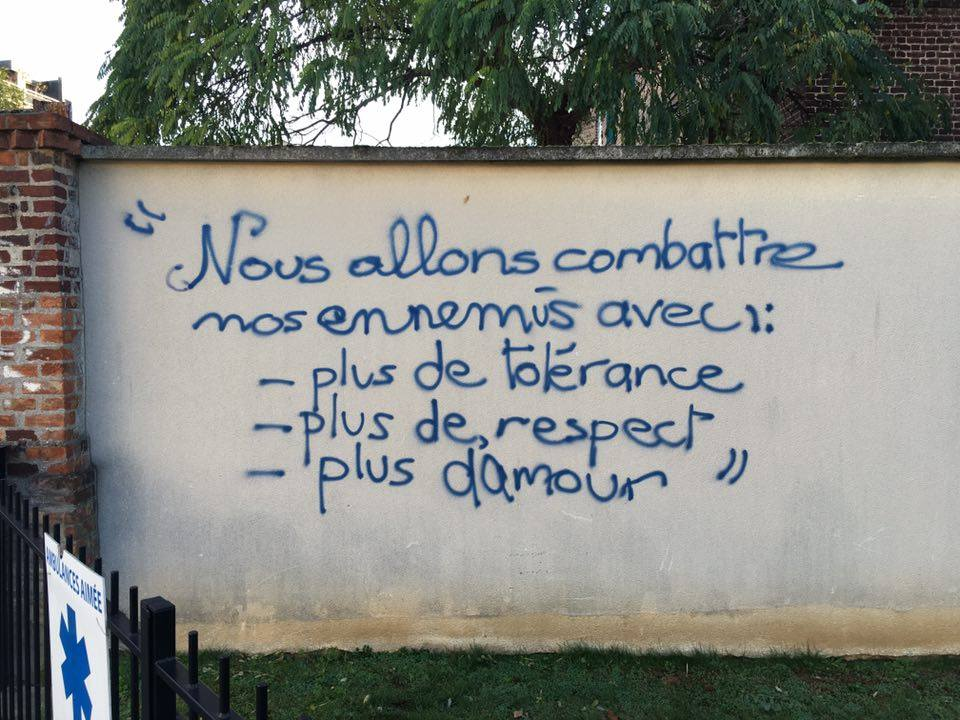 “Nous allons combattre
nos ennemis avec :
- plus de tolérance
- plus de respect
- plus d'amour ”
AMBULANCES AIMÉE